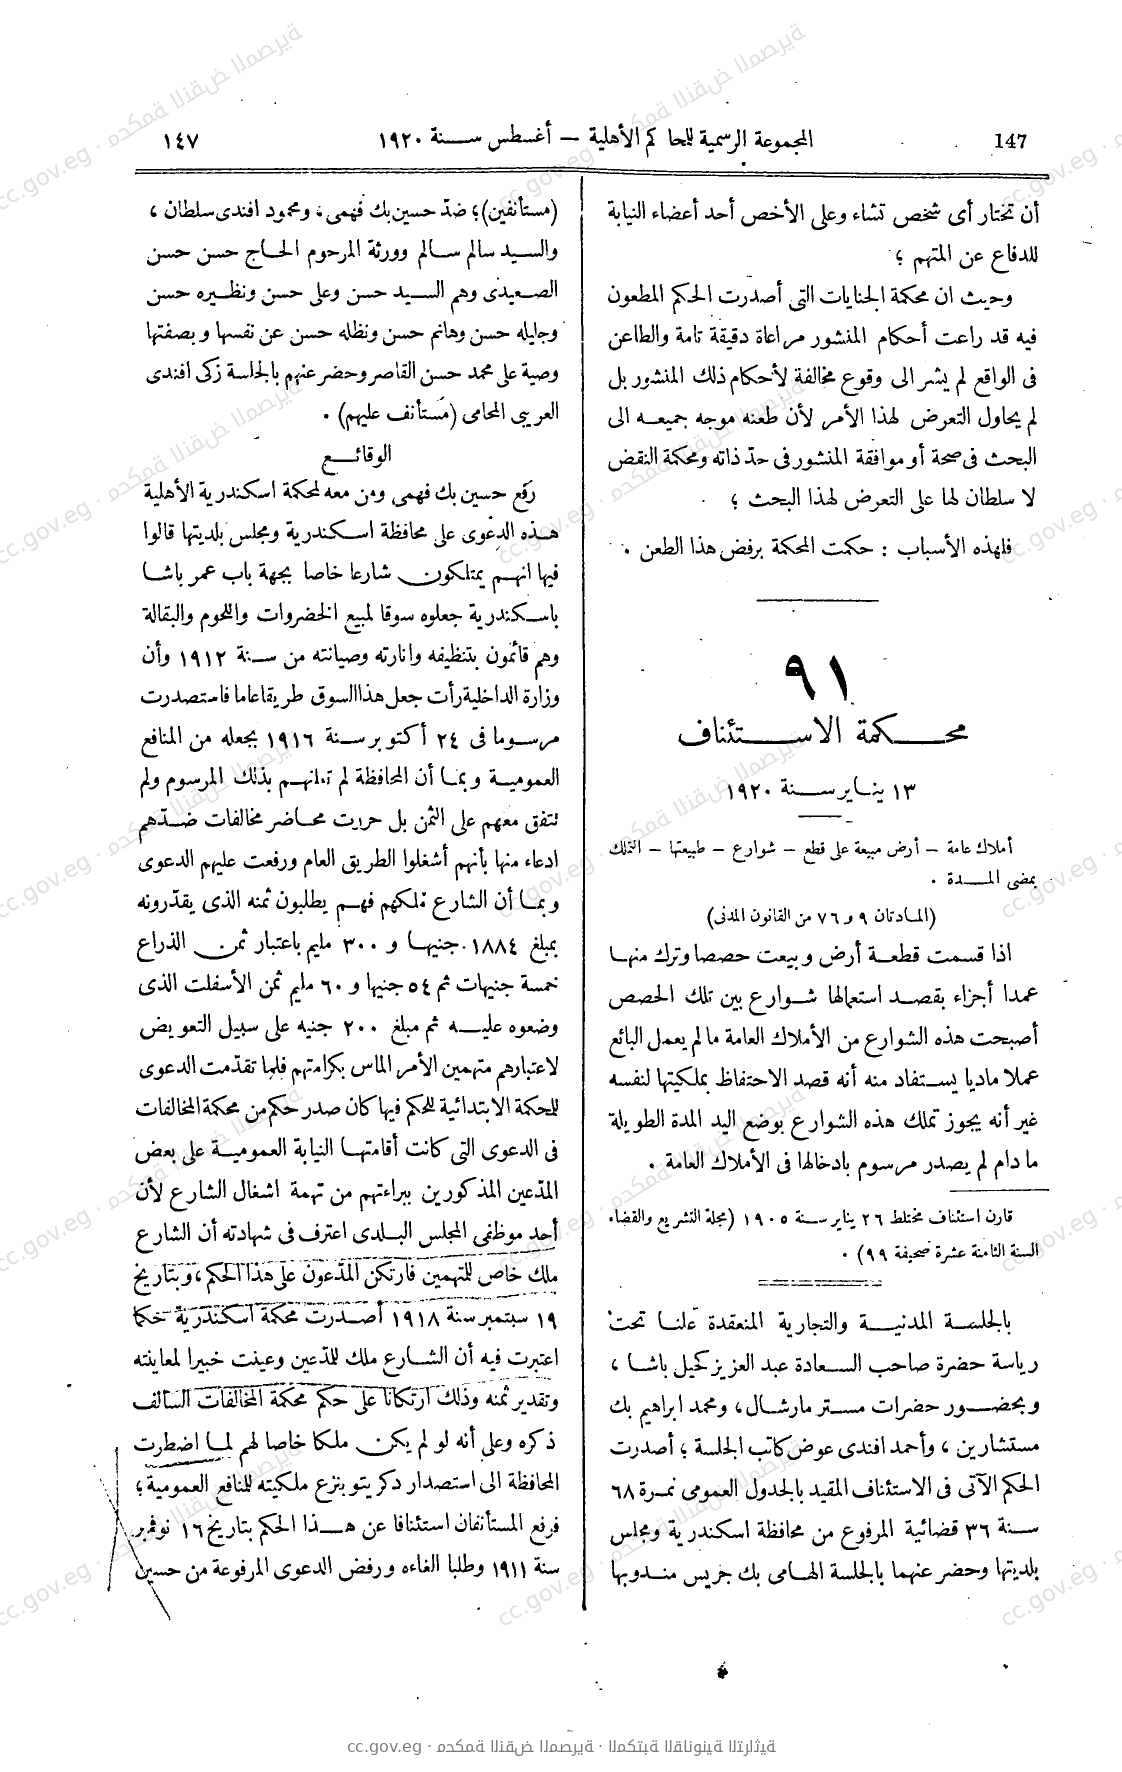 147 المجموعة الرسمية للمحاكم الأهلية – أغسطس سنة ١٩٢٠ ١٤٧
أن تختار أى شخص تشاء وعلى الأخص أحد أعضاء النيابة
للدفاع عن المتهم ؛
وحيث ان محكمة الجنايات التى أصدرت الحكم المطعون
فيه قد راعت أحكام المنشور مراعاة دقيقة تامة والطاعن
فى الواقع لم يشر الى وقوع مخالفة لأحكام ذلك المنشور بل
لم يحاول التعرض لهذا الأمر لأن طعنه موجه جميعه الى
البحث فى صحة أو موافقة المنشور فى حدّ ذاته ومحكمة النقض
لا سلطان لها على التعرض لهذا البحث ؛
فلهذه الأسباب : حكمت المحكمة برفض هذا الطعن .
٩١
محكمة الاستئناف
١٣ يناير سنة ١٩٢٠
أملاك عامة – أرض مبيعة على قطع – شوارع – طبيعتها – التملك
بمضى المدة .
(المادتان ٩ و ٧٦ من القانون المدنى)
اذا قسمت قطعة أرض وبيعت حصصا وترك منها
عمدا أجزاء بقصد استعمالها شوارع بين تلك الحصص
أصبحت هذه الشوارع من الأملاك العامة ما لم يعمل البائع
عملا ماديا يستفاد منه أنه قصد الاحتفاظ بملكيتها لنفسه
غير أنه يجوز تملك هذه الشوارع بوضع اليد المدة الطويلة
ما دام لم يصدر مرسوم بادخالها فى الأملاك العامة .
قارن استئناف مختلط ٢٦ يناير سنة ١٩٠٥ (مجلة التشريع والقضاء
السنة الثامنة عشرة صحيفة ٩٩) .
بالجلسة المدنية والتجارية المنعقدة علنا تحت
رياسة حضرة صاحب السعادة عبد العزيز كحيل باشا ،
وبحضور حضرات مستر مارشال، ومحمد ابراهيم بك
مستشارين ، وأحمد افندى عوض كاتب الجلسة ؛ أصدرت
الحكم الآتى فى الاستئناف المقيد بالجدول العمومى نمرة ٦٨
سنة ٣٦ قضائية المرفوع من محافظة اسكندرية ومجلس
بلديتها وحضر عنهما بالجلسة الهامى بك جريس مندوبها
(مستأنفين) ؛ ضدّ حسين بك فهمى، ومحمود افندى سلطان ،
والسيد سالم سالم وورثة المرحوم الحاج حسن حسن
الصعيدى وهم السيد حسن وعلى حسن ونظيره حسن
وجليله حسن وهانم حسن ونظله حسن عن نفسها وبصفتها
وصية على محمد حسن القاصر وحضر عنهم بالجلسة زكى افندى
العريبى المحامى (مستأنف عليهم) .
الوقائع
رفع حسين بك فهمى ومن معه لمحكمة اسكندرية الأهلية
هذه الدعوى على محافظة اسكندرية ومجلس بلديتها قالوا
فيها انهم يمتلكون شارعا خاصا بجهة باب عمر باشا
باسكندرية جعلوه سوقا لمبيع الخضروات واللحوم والبقالة
وهم قائمون بتنظيفه وانارته وصيانته من سنة ١٩١٢ وأن
وزارة الداخلية رأت جعل هذا السوق طريقا عاما فاستصدرت
مرسوما فى ٢٤ أكتوبر سنة ١٩١٦ بجعله من المنافع
العمومية وبما أن المحافظة لم تعلنهم بذلك المرسوم ولم
تتفق معهم على الثمن بل حررت محاضر مخالفات ضدّهم
ادعاء منها بأنهم أشغلوا الطريق العام ورفعت عليهم الدعوى
وبما أن الشارع ملكهم فهم يطلبون ثمنه الذى يقدّرونه
بمبلغ ١٨٨٤ جنيها و ٣٠٠ مليم باعتبار ثمن الذراع
خمسة جنيهات ثم ٥٤ جنيها و ٦٠ مليم ثمن الأسفلت الذى
وضعوه عليه ثم مبلغ ٢٠٠ جنيه على سبيل التعويض
لاعتبارهم متهمين الأمر الماس بكرامتهم فلما تقدّمت الدعوى
للمحكمة الابتدائية للحكم فيها كان صدر حكم من محكمة المخالفات
فى الدعوى التى كانت أقامتها النيابة العمومية على بعض
المدّعين المذكورين ببراءتهم من تهمة اشغال الشارع لأن
أحد موظفى المجلس البلدى اعترف فى شهادته أن الشارع
ملك خاص للمتهمين فارتكن المدّعون على هذا الحكم ، وبتاريخ
١٩ سبتمبر سنة ١٩١٨ أصدرت محكمة اسكندرية حكما
اعتبرت فيه أن الشارع ملك للمدّعين وعينت خبيرا لمعاينته
وتقدير ثمنه وذلك ارتكانا على حكم محكمة المخالفات السالف
ذكره وعلى أنه لو لم يكن ملكا خاصا لهم لما اضطرت
المحافظة الى استصدار دكريتو بنزع ملكيته للمنافع العمومية ؛
فرفع المستأنفان استئنافا عن هذا الحكم بتاريخ ١٦ نوفمبر
سنة ١٩١١ وطلبا الغاءه ورفض الدعوى المرفوعة من حسين
cc.gov.eg · محكمة النقض المصرية · المكتبة القانونية التراثية